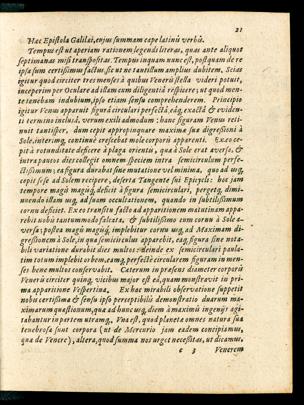 21
Hæc Epistola Galilæi, cujus summam cape latinis verbis.
Tempus est ut aperiam rationem legendi literas, quas ante aliquot
septimanas misi transpositas. Tempus inquam nunc est, postquam de re
ipsa sum certissimus factus, sic ut ne tantillum amplius dubitem. Scias
igitur quod circiter tres menses à quibus Veneris stella videri potuit,
inceperim per Oculare ad illam cum diligentia respicere; ut quod men-
te tenebam indubium, ipso etiam sensu comprehenderem. Principio
igitur Venus apparuit figurâ circulari perfectâ, eâq́; exactâ & eviden-
ti termino inclusâ, verum exili admodum: hanc figuram Venus reti-
nuit tantisper, dum cepit appropinquare maxima sua digressioni à
Sole, interimq́; continuè crescebat mole corporis apparenti. Exce-
pit à rotunditate deficere à plaga orientis, qua à Sole erat aversa, &
intra paucos dies collegit omnem speciem intra semicirculum perfe-
ctissimum; ea figura durabat sine mutatione vel minima, quo ad usq́;
cepit sese ad Solem recipere, deserta Tangente sui Epicycli: hoc jam
tempore magis magisq́; deficit à figura semicirculari, pergetq́; dimi-
nuendo illam usq́; ad suam occultationem, quando in subtilissimum
cornu deficiet. Exco transitu facto ad apparitionem matutinam appa-
rebit nobis tantummodo falcata, & subtilissimo cum cornu à Sole a-
verso; postea magis magisq́; implebitur cornu usq́; ad Maximam di-
gressionem à Sole, in qua semicirculus apparebit, eaq́; figura sine nota-
bili variatione durabit dies multos: deinde ex semicirculari paula-
tim totum implebit orbem, eamq́; perfectè circularem figuram in men-
ses bene multos conservabit. Cæterum in præsens diameter corporis
Veneris circiter quinq́; vicibus major est eâ, quam monstravit in pri-
ma apparitione Vespertina. Ex hac mirabili observatione suppetit
nobis certissima & sensu ipso perceptibilis demonstratio duarum ma-
ximarum quæstionum, quæ ad hunc usq́; diem à maximis ingeniis agi-
tabantur in partem utramq́;. Una est, quod planetæ omnes natura sua
tenebrosa sunt corpora (ut de Mercurio jam eadem concipiamus,
quæ de Venere), altera, quod summa nos urget necessitas, ut dicamus,
c 3 Venerem